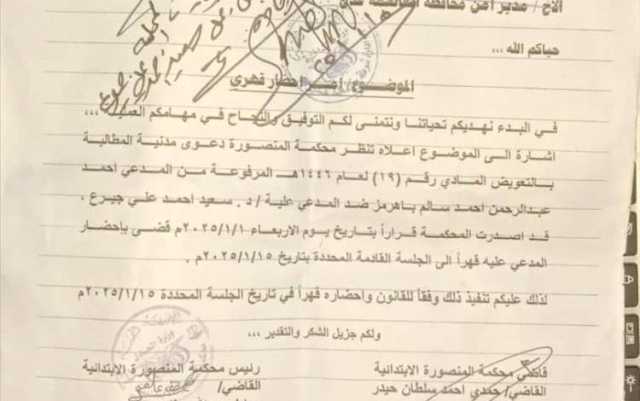 الاخ / مدير أمن محافظة
حياكم الله ...
الموضوع / أمر إحضار قهري
في البدء نهديكم تحياتنا ونتمنى لكم التوفيق والنجاح في مهامكم العملية ...
اشارة الى الموضوع اعلاه تنظر محكمة المنصورة دعوى مدنية المطالبة
بالتعويض المادي رقم (١٩) لعام ١٤٤٦هـ المرفوعة من المدعي احمد
عبدالرحمن احمد سالم باهرمز ضد المدعي علية / د . سعيد احمد علي جيرع .
قد اصدرت المحكمة قراراً بتاريخ يوم الاربعاء ٢٠٢٥/١/١م قضى بإحضار
المدعي عليه قهراً الى الجلسة القادمة المحددة بتاريخ ٢٠٢٥/١/١٥م .
لذلك عليكم تنفيذ ذلك وفقاً للقانون واحضاره قهراً في تاريخ الجلسة المحددة ٢٠٢٥/١/١٥م
ولكم جزيل الشكر والتقدير ...
قاضي محكمة المنصورة الابتدائية
القاضي/ حمدي احمد سلطان حيدر
رئيس محكمة المنصورة الابتدائية
القاضي/